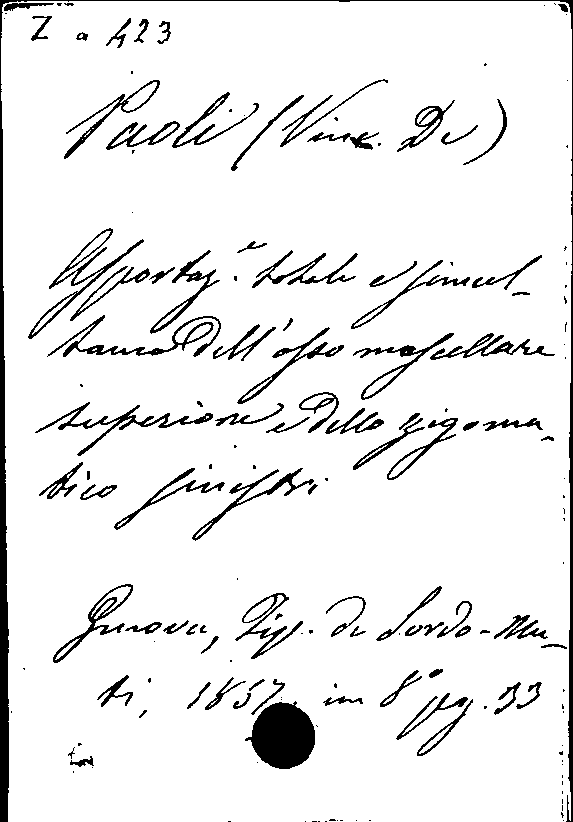 Z a 423
Paoli (Vinc. De)
Asportaz.e totale e simul-
tanea dell'osso mascellare
superiore e dello zigoma-
tico sinistri
Genova, Tip. de Sordo-Mu-
ti, 1857. in 8° pg. 33